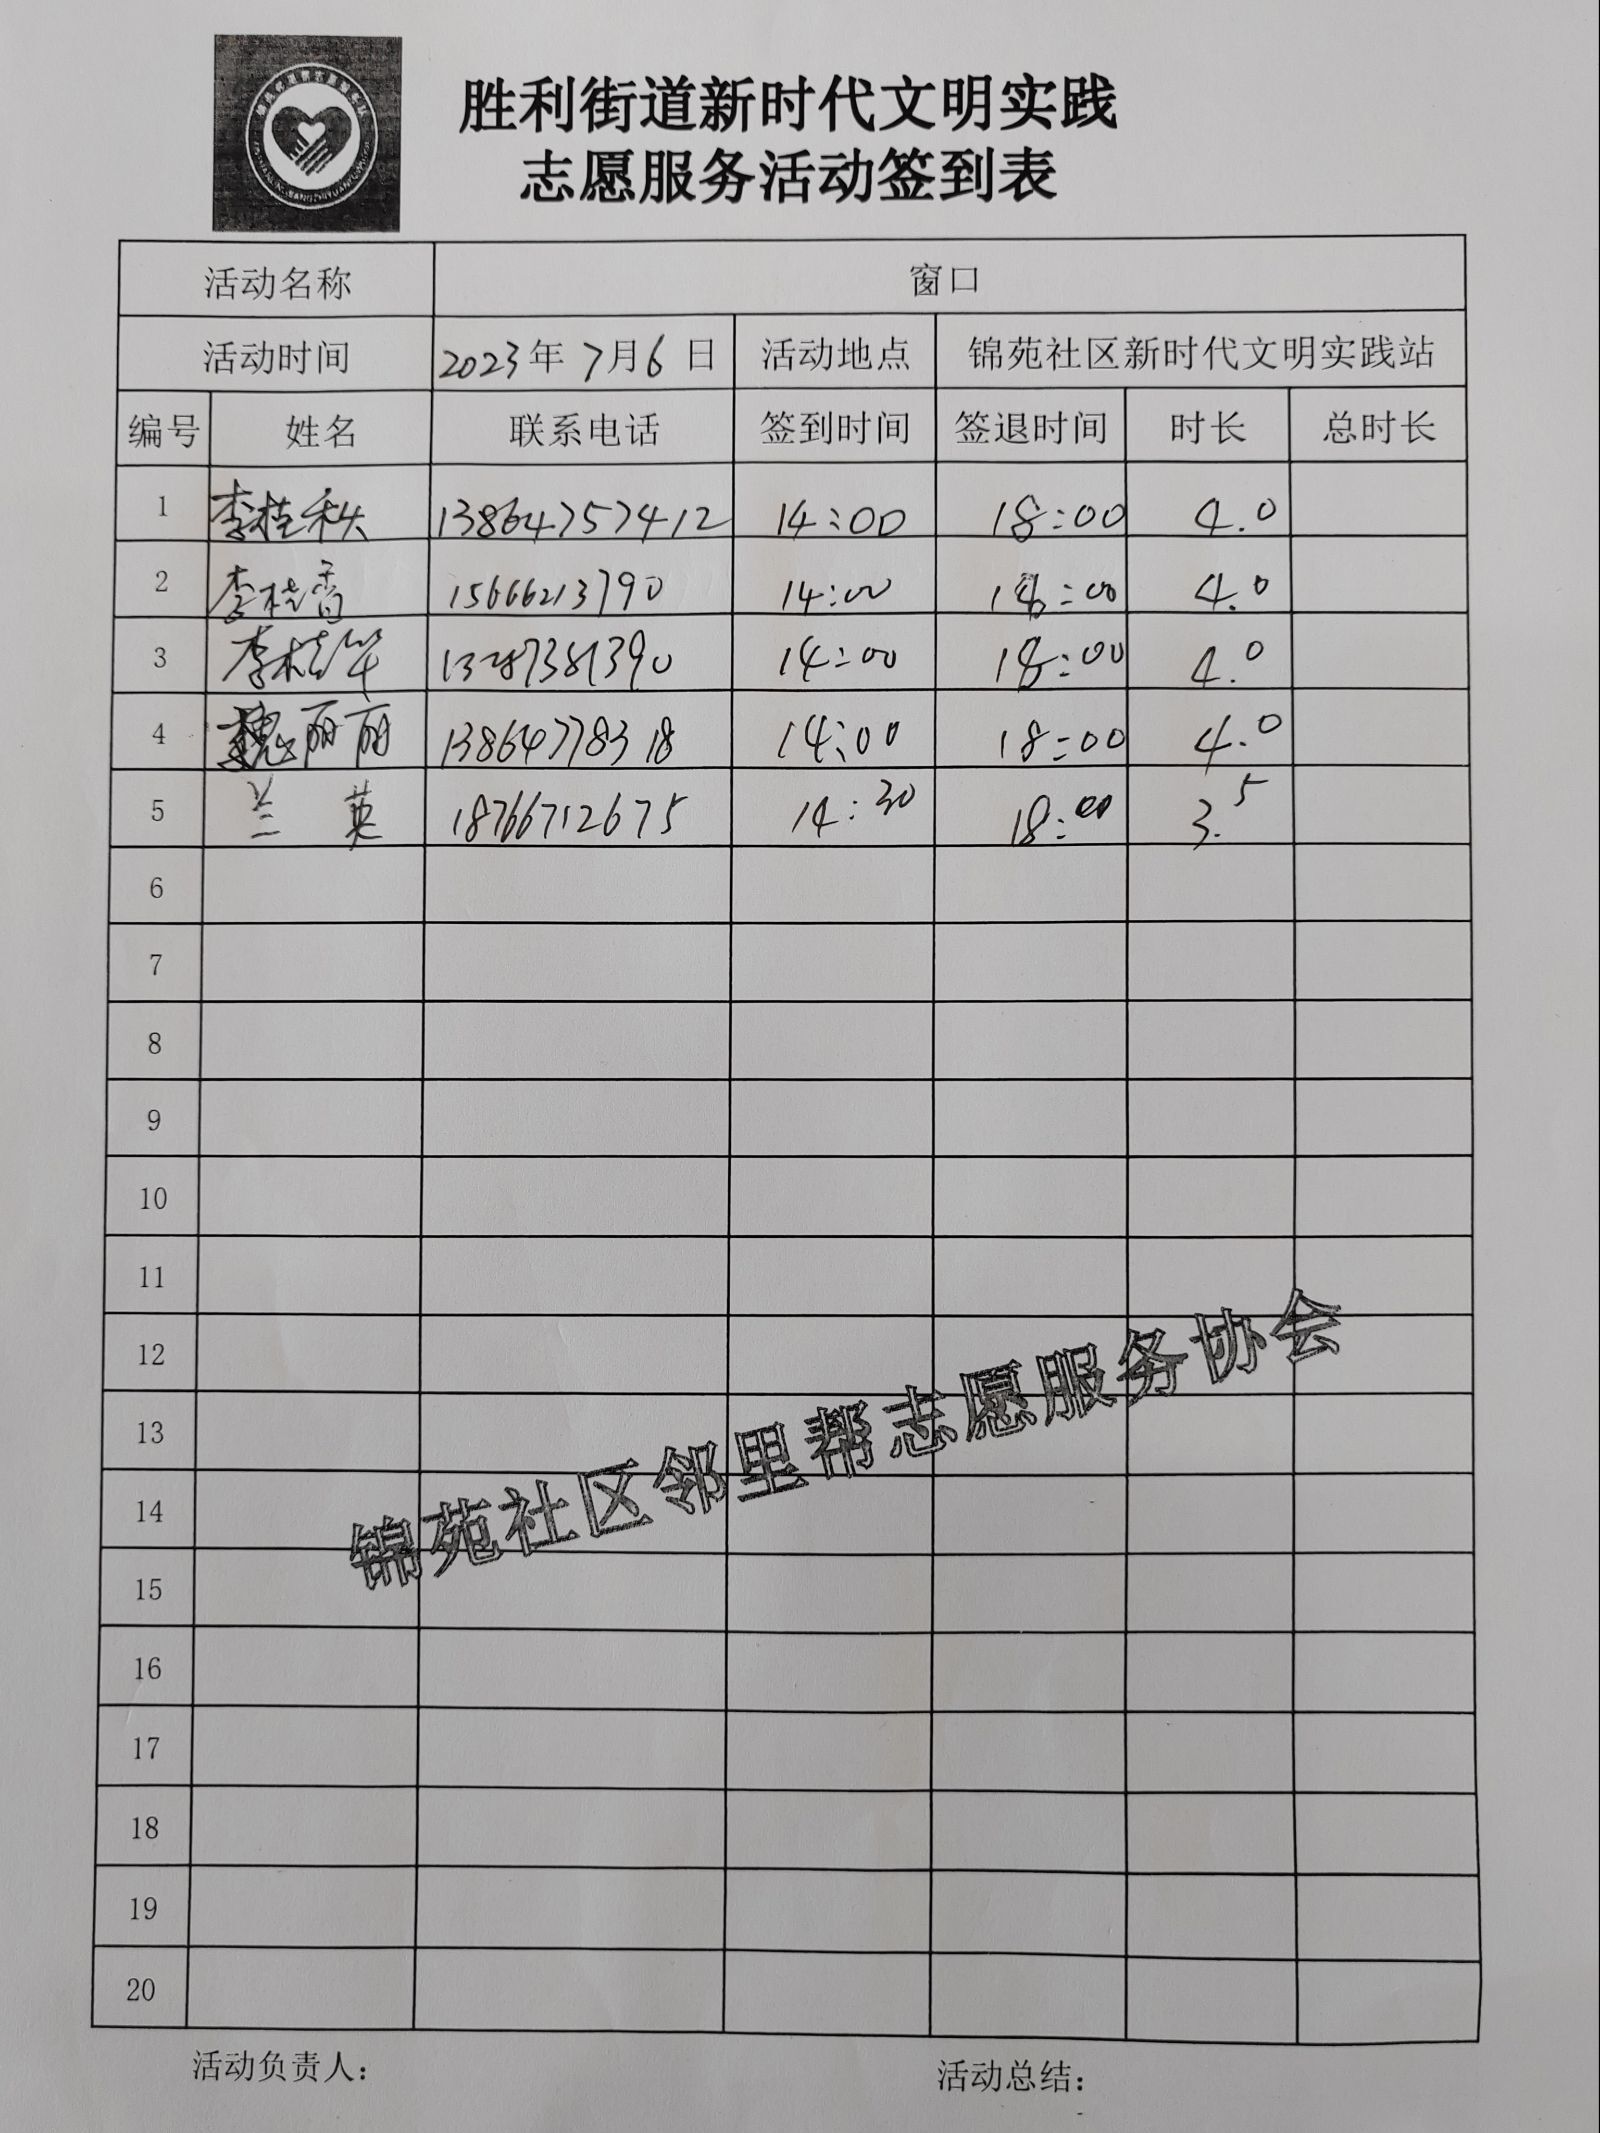 胜利街道新时代文明实践
志愿服务活动签到表
活动名称 窗口
活动时间 2023年7月6日 活动地点 锦苑社区新时代文明实践站
编号 姓名 联系电话 签到时间 签退时间 时长 总时长
1 李桂秋 13864757412 14:00 18:00 4.0
2 李桂香 15666213790 14:00 18:00 4.0
3 李桂华 14:00 18:00 4.0
4 魏丽丽 13864778318 14:00 18:00 4.0
5 兰英 18766712675 14:30 18:00 3.5
6
7
8
9
10
11
12
13
14
15
16
17
18
19
20
锦苑社区邻里帮志愿服务协会
活动负责人： 活动总结：